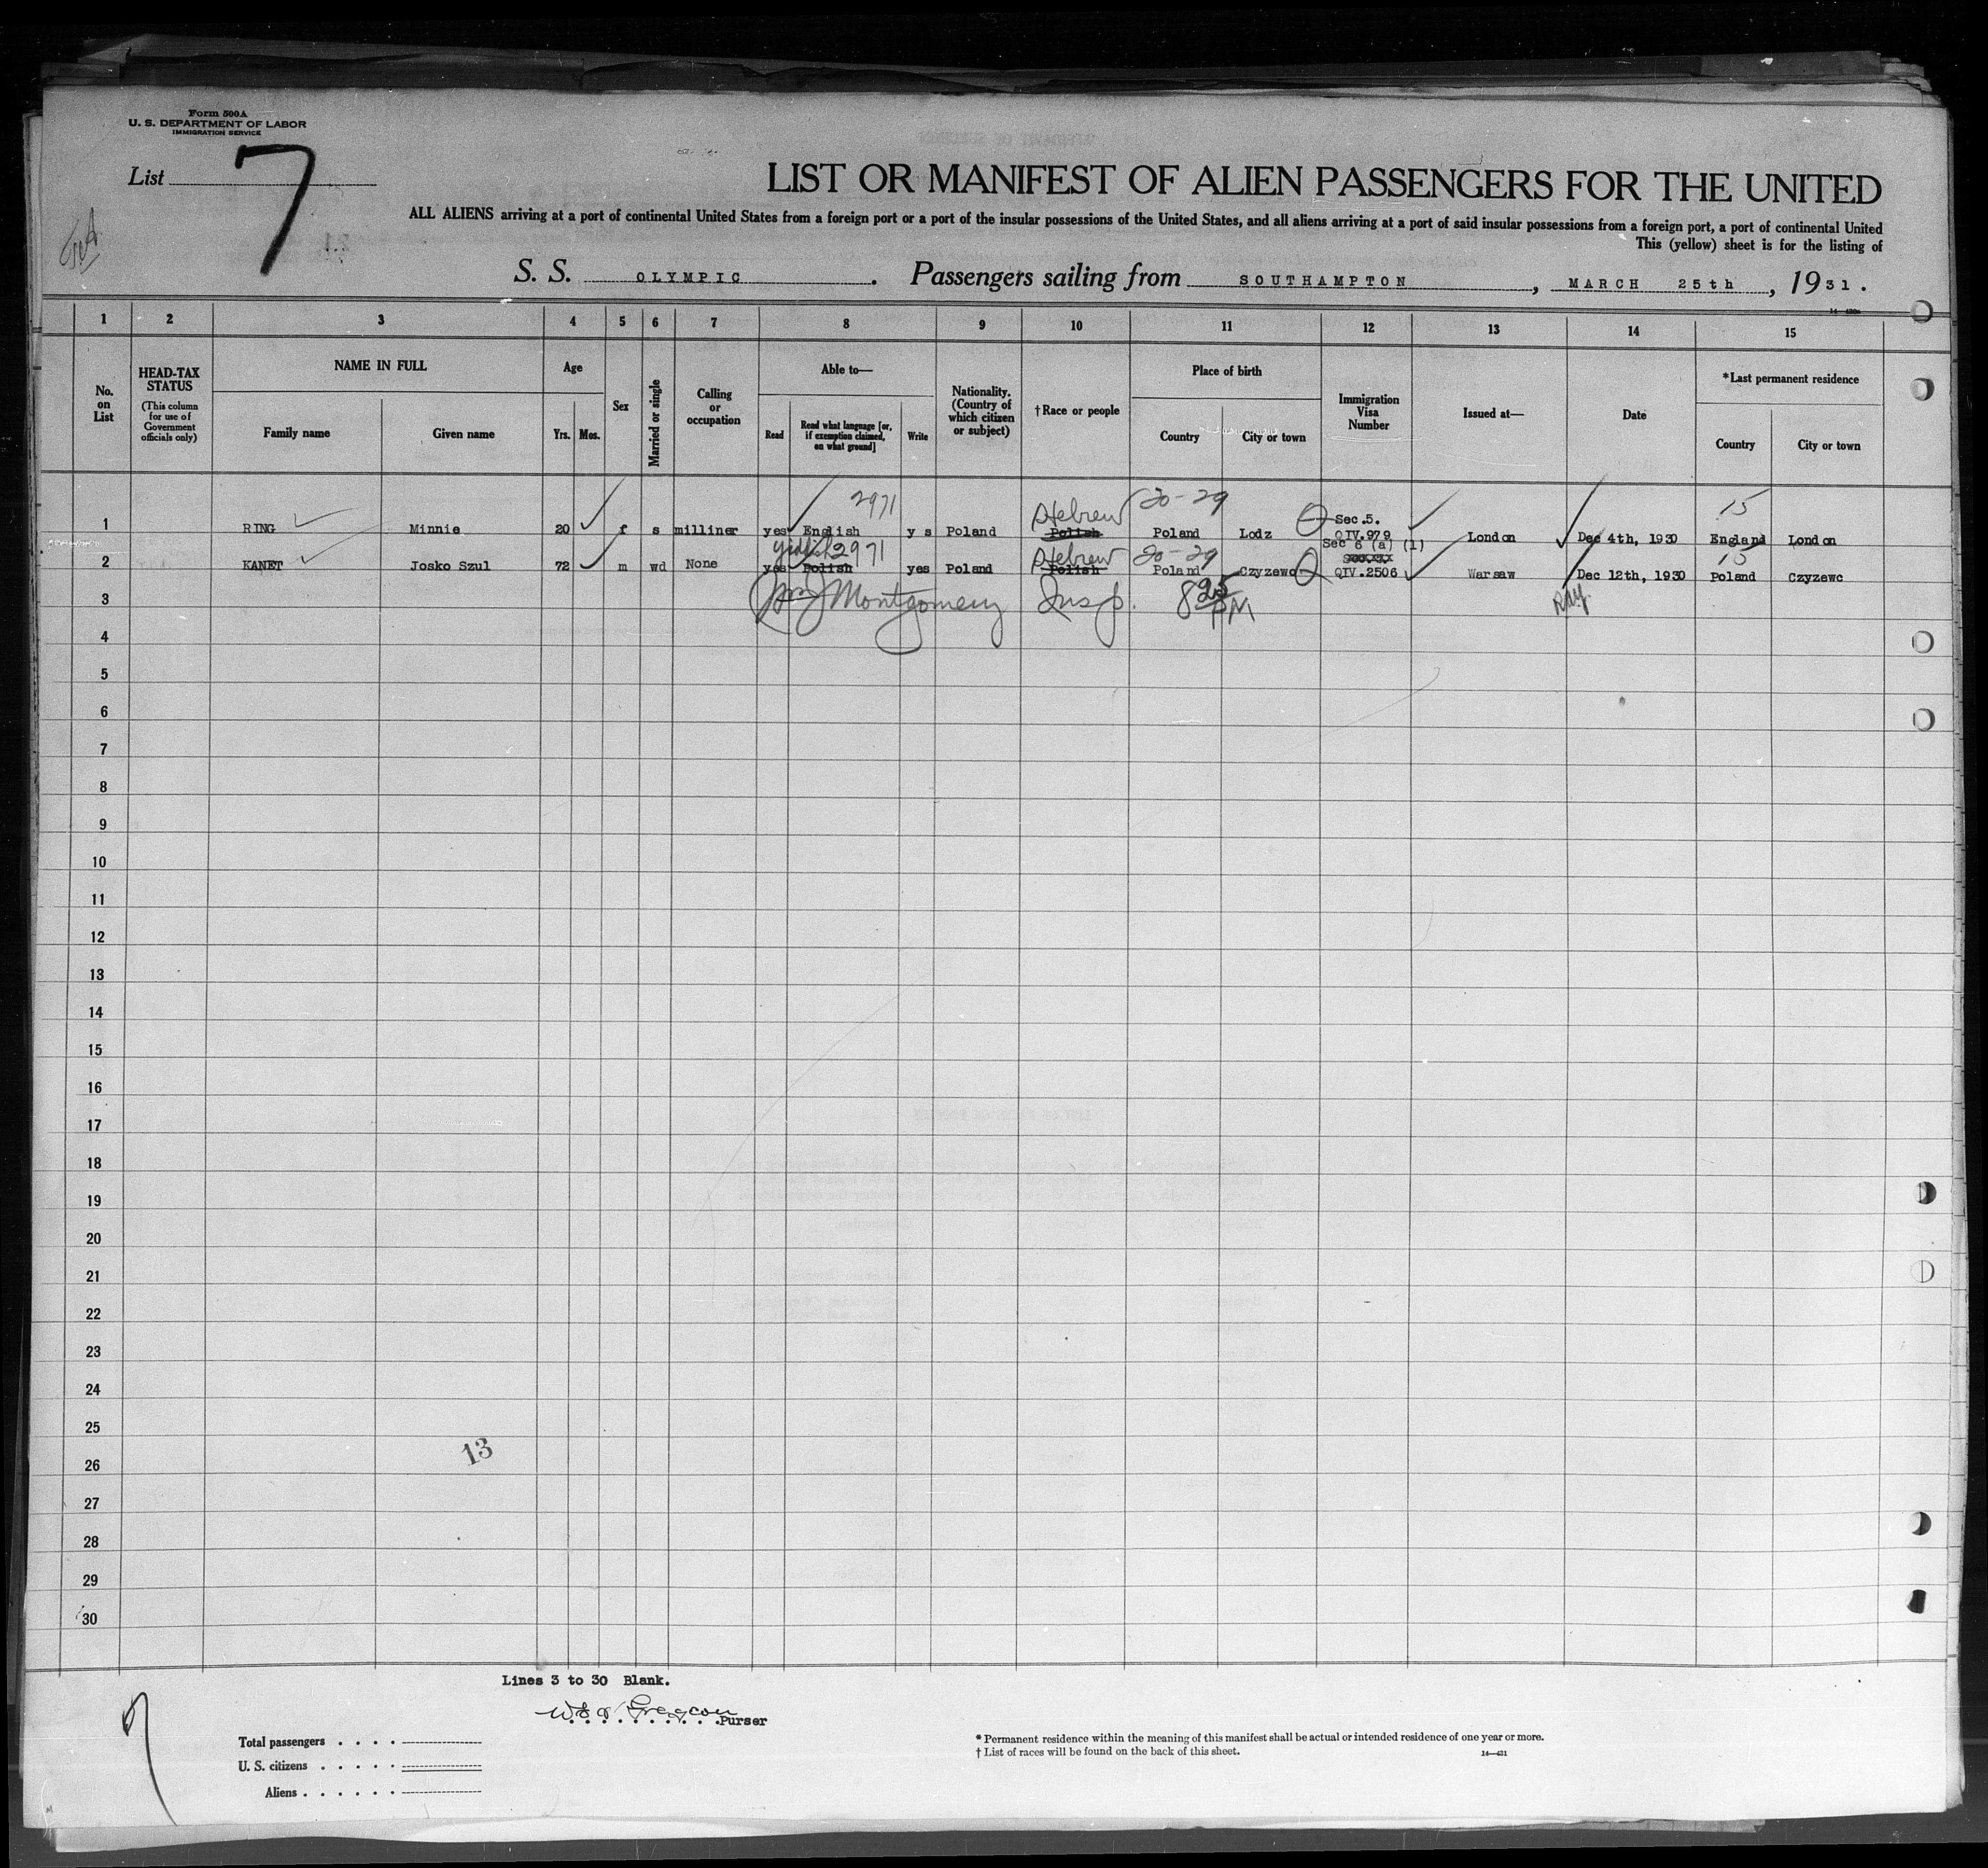 Form 500A
U. S. DEPARTMENT OF LABOR
IMMIGRATION SERVICE
List 7
LIST OR MANIFEST OF ALIEN PASSENGERS FOR THE UNITED
ALL ALIENS arriving at a port of continental United States from a foreign port or a port of the insular possessions of the United States, and all aliens arriving at a port of said insular possessions from a foreign port, a port of continental United
This (yellow) sheet is for the listing of
S. S. OLYMPIC. Passengers sailing from SOUTHAMPTON, MARCH 25th, 1931.
1 2 3 4 5 6 7 8 9 10 11 12 13 14 15
No. on List
HEAD-TAX STATUS (This column for use of Government officials only)
NAME IN FULL
Family name Given name
Age
Yrs. Mos.
Sex
Married or single
Calling or occupation
Able to—
Read Read what language [or, if exemption claimed, on what ground] Write
Nationality. (Country of which citizen or subject)
†Race or people
Place of birth
Country City or town
Immigration Visa Number
Issued at—
Date
*Last permanent residence
Country City or town
2971 Hebrew 20-29 Sec.5. 15
1 RING Minnie 20 f s milliner yes English y s Poland Polish Poland Lodz QIV.979 London Dec 4th, 1930 England London
Yiddish 2971 Hebrew 20-29 Sec 6 (a) (1) 15
2 KANET Josko Szul 72 m wd None yes Polish yes Poland Polish Poland Czyzewo QIV.2506 Warsaw Dec 12th, 1930 Poland Czyzewo
3 Montgomery Insp. 8 25 PM
4
5
6
7
8
9
10
11
12
13
14
15
16
17
18
19
20
21
22
23
24
25
13
26
27
28
29
30
Lines 3 to 30 Blank.
Purser
Total passengers
U. S. citizens
Aliens
* Permanent residence within the meaning of this manifest shall be actual or intended residence of one year or more.
† List of races will be found on the back of this sheet.
14—431